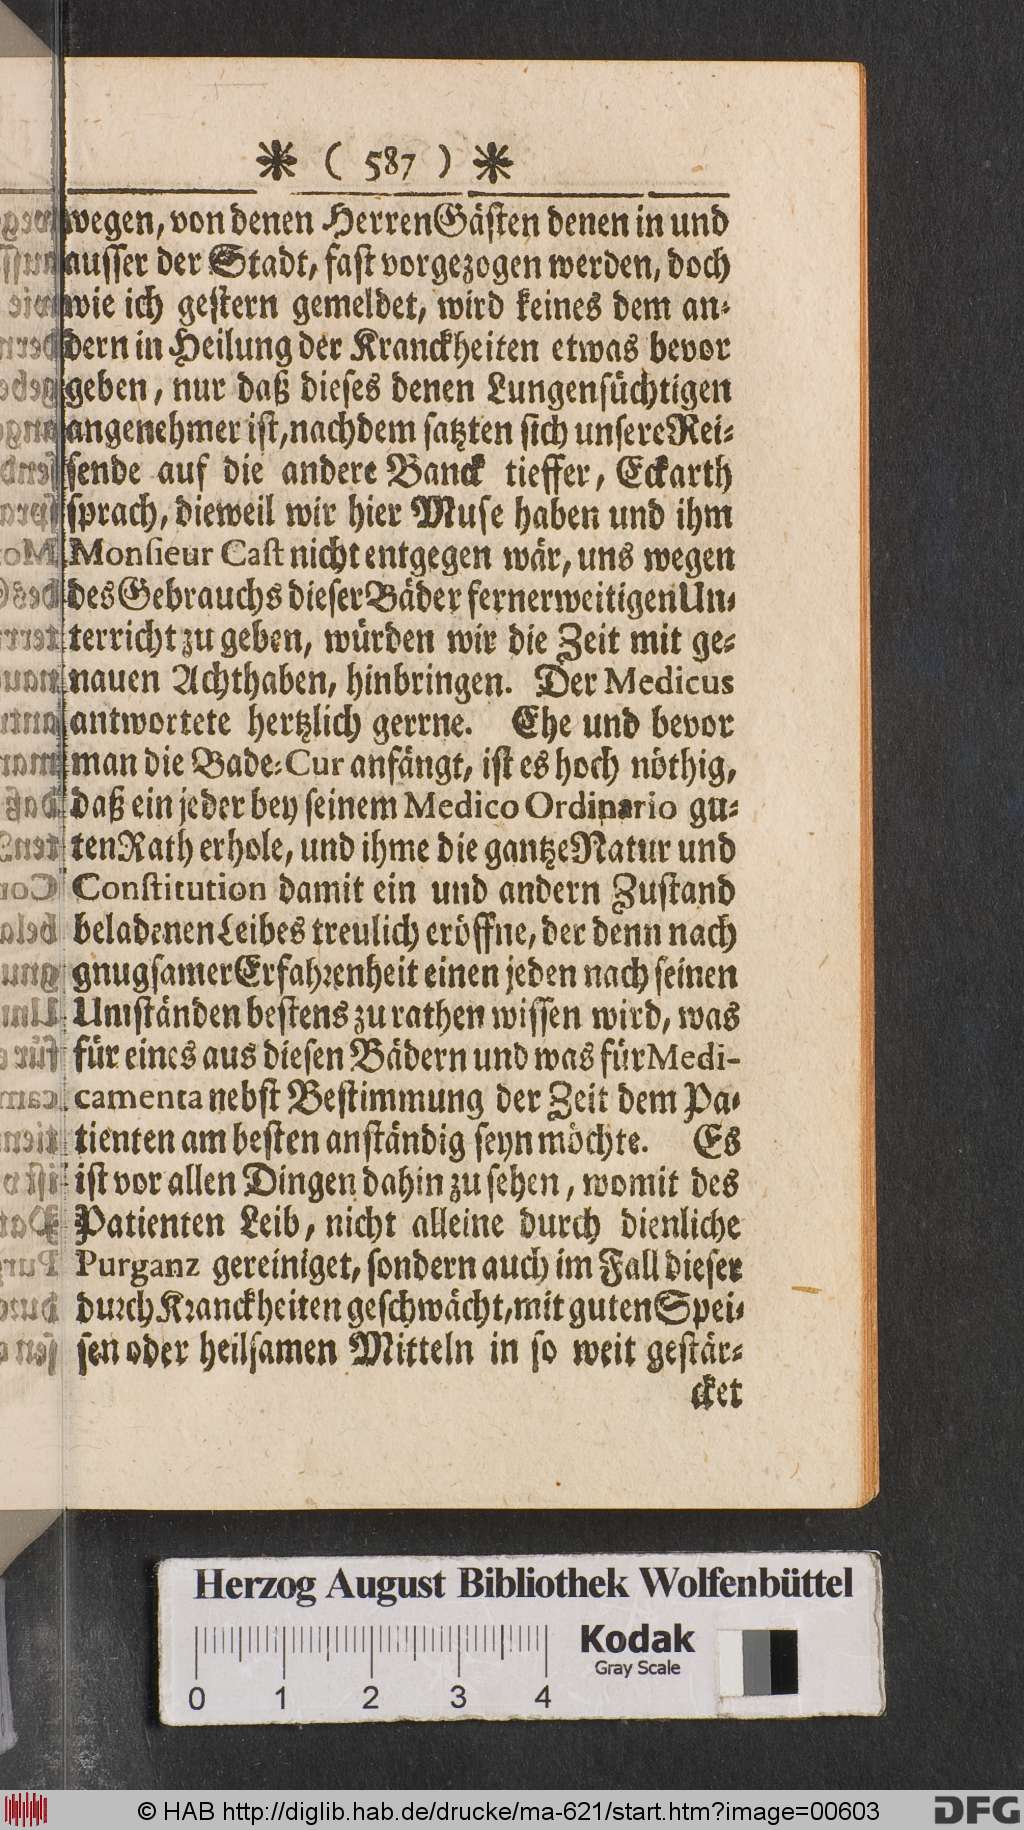 * ( 587 ) *
wegen, von denen Herren Gästen denen in und
ausser der Stadt, fast vorgezogen werden, doch
wie ich gestern gemeldet, wird keines dem an-
dern in Heilung der Kranckheiten etwas bevor
geben, nur daß dieses denen Lungensüchtigen
angenehmer ist, nachdem satzten sich unsere Rei-
sende auf die andere Banck tieffer, Eckarth
sprach, dieweil wir hier Muse haben und ihm
Monsieur Cast nicht entgegen wär, uns wegen
des Gebrauchs dieser Bäder fernerweitigen Un-
terricht zu geben, würden wir die Zeit mit ge-
nauen Achthaben, hinbringen. Der Medicus
antwortete hertzlich gerrne. Ehe und bevor
man die Bade-Cur anfängt, ist es hoch nöthig,
daß ein jeder bey seinem Medico Ordinario gu-
ten Rath erhole, und ihme die gantze Natur und
Constitution damit ein und andern Zustand
beladenen Leibes treulich eröffne, der denn nach
gnugsamer Erfahrenheit einen jeden nach seinen
Umständen bestens zu rathen wissen wird, was
für eines aus diesen Bädern und was für Medi-
camenta nebst Bestimmung der Zeit dem Pa-
tienten am besten anständig seyn möchte. Es
ist vor allen Dingen dahin zu sehen, womit des
Patienten Leib, nicht alleine durch dienliche
Purganz gereiniget, sondern auch im Fall dieser
durch Kranckheiten geschwächt, mit guten Spei-
sen oder heilsamen Mitteln in so weit gestär-
cket
Herzog August Bibliothek Wolfenbüttel
Kodak
Gray Scale
0 1 2 3 4
© HAB http://diglib.hab.de/drucke/ma-621/start.htm?image=00603
DFG